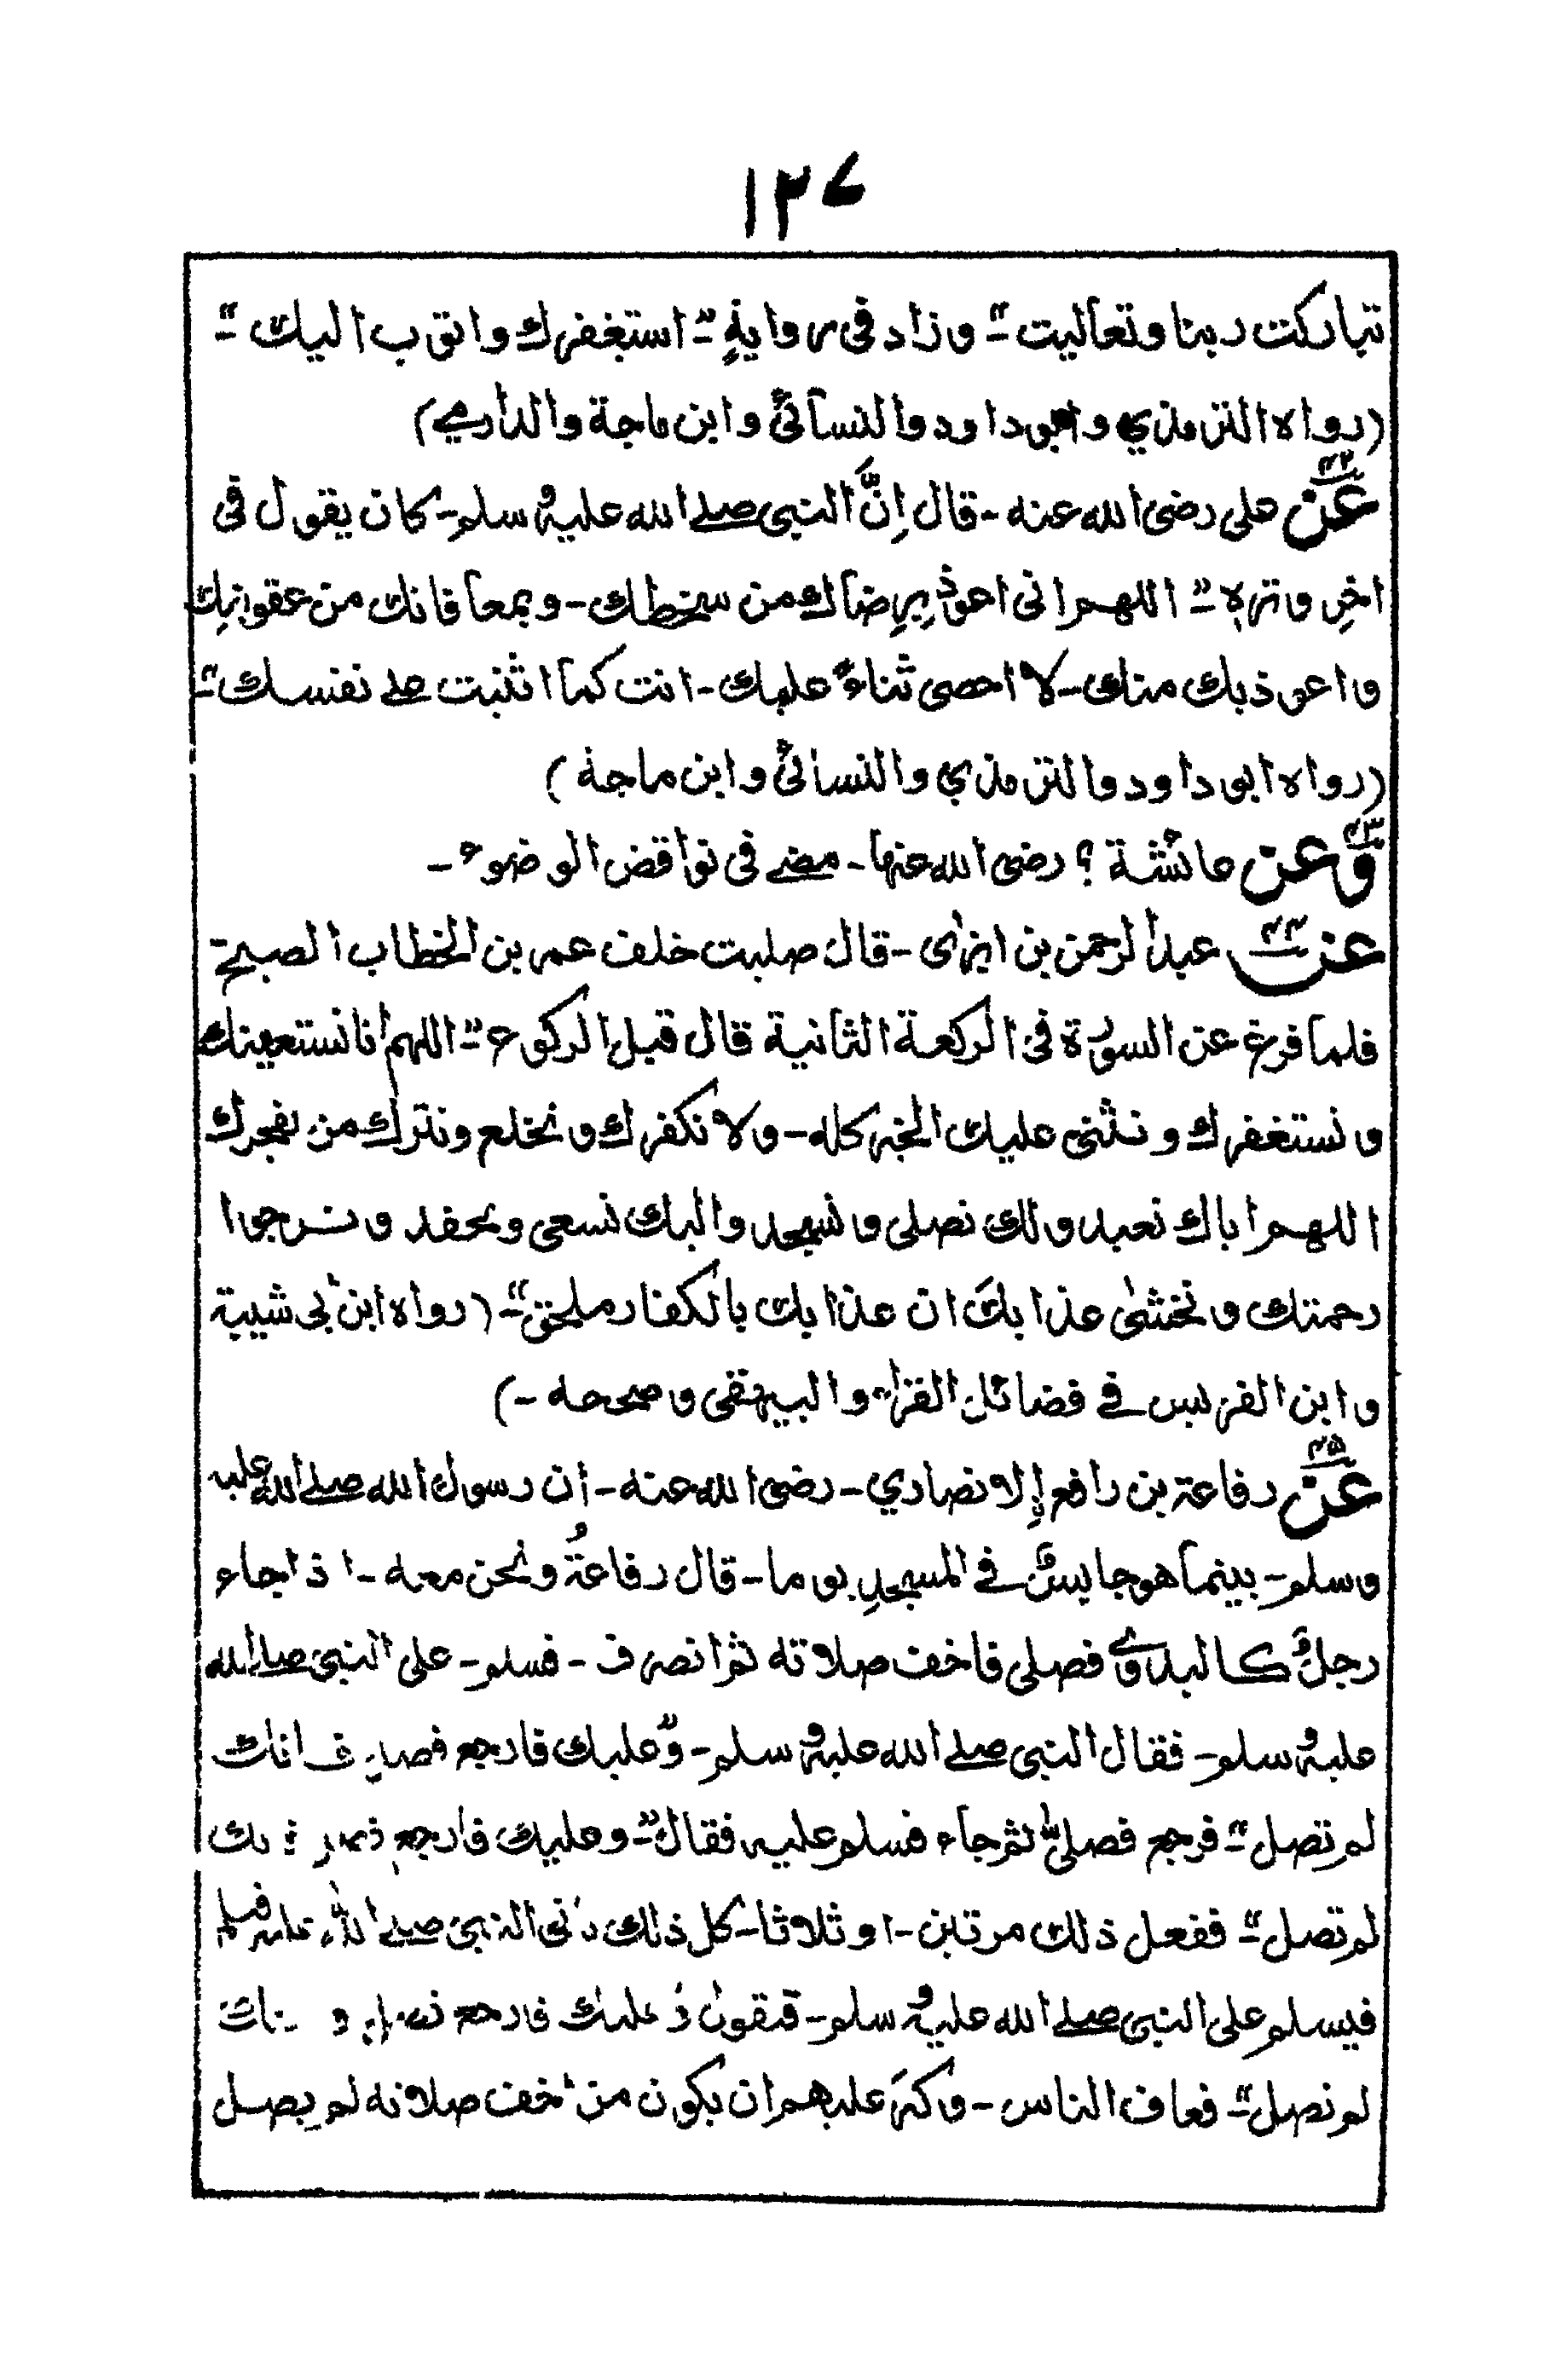 ١٢٧
تباركت ربنا وتعاليت" - وزاد في رواية " - استغفرك واتوب اليك" -
(رواه الترمذي وابوداود والنسائي وابن ماجة والدارمي)
٤٢ عن علي رضى الله عنه - قال إنّ النبي صلى الله عليه وسلم - كان يقول فى
اخر وتره " - اللهم انى اعوذ برضاك من سخطك - وبمعافاتك من عقوبتك
واعوذ بك منك - لا احصى ثناءً عليك - انت كما اثنيت على نفسك" -
(رواه ابوداود والترمذي والنسائي وابن ماجة)
٤٣ وعن عائشة ؟ رضى الله عنها - مضى فى نواقض الوضوء -
٤٤ عن عبدالرحمن بن ابزى - قال صليت خلف عمر بن الخطاب الصبح
فلما فرغ عن السورة فى الركعة الثانية قال قبل الركوع " - اللهم انا نستعينك
ونستغفرك ونثني عليك الخير كله - ولا نكفرك ونخلع ونترك من يفجرك
اللهم اياك نعبد ولك نصلى ونسجد واليك نسعى ونحفد ونرجوا
رحمتك ونخشى عذابك ان عذابك بالكفار ملحق" - (رواه ابن ابى شيبة
وابن الضريس في فضائل القران والبيهقى وصححه -)
٤٥ عن رفاعة بن رافع الانصاري - رضى الله عنه - ان رسول الله صلى الله عليه
وسلم - بينما هو جالسٌ في المسجدِ يوما - قال رفاعةُ ونحن معه - اذ اجاء
رجلٌ كالبدوي فصلى فاخف صلاته ثم انصرف - فسلم - على النبى صلى الله
عليه وسلم - فقال النبى صلى الله عليه وسلم - "وعليك فارجع فصل فانك
لم تصل" - فرجع فصلىّ ثم جاء فسلم عليه فقال" - وعليك فارجع
لم تصل" - ففعل ذلك مرتين - او ثلاثا - كل ذلك النبى صلى الله عليه
فيسلم على النبى صلى الله عليه وسلم - فيقول وعليك فارجع
لم تصل" - فعاف الناس - وكبر عليهم ان يكون من اخف صلاته لم يصل